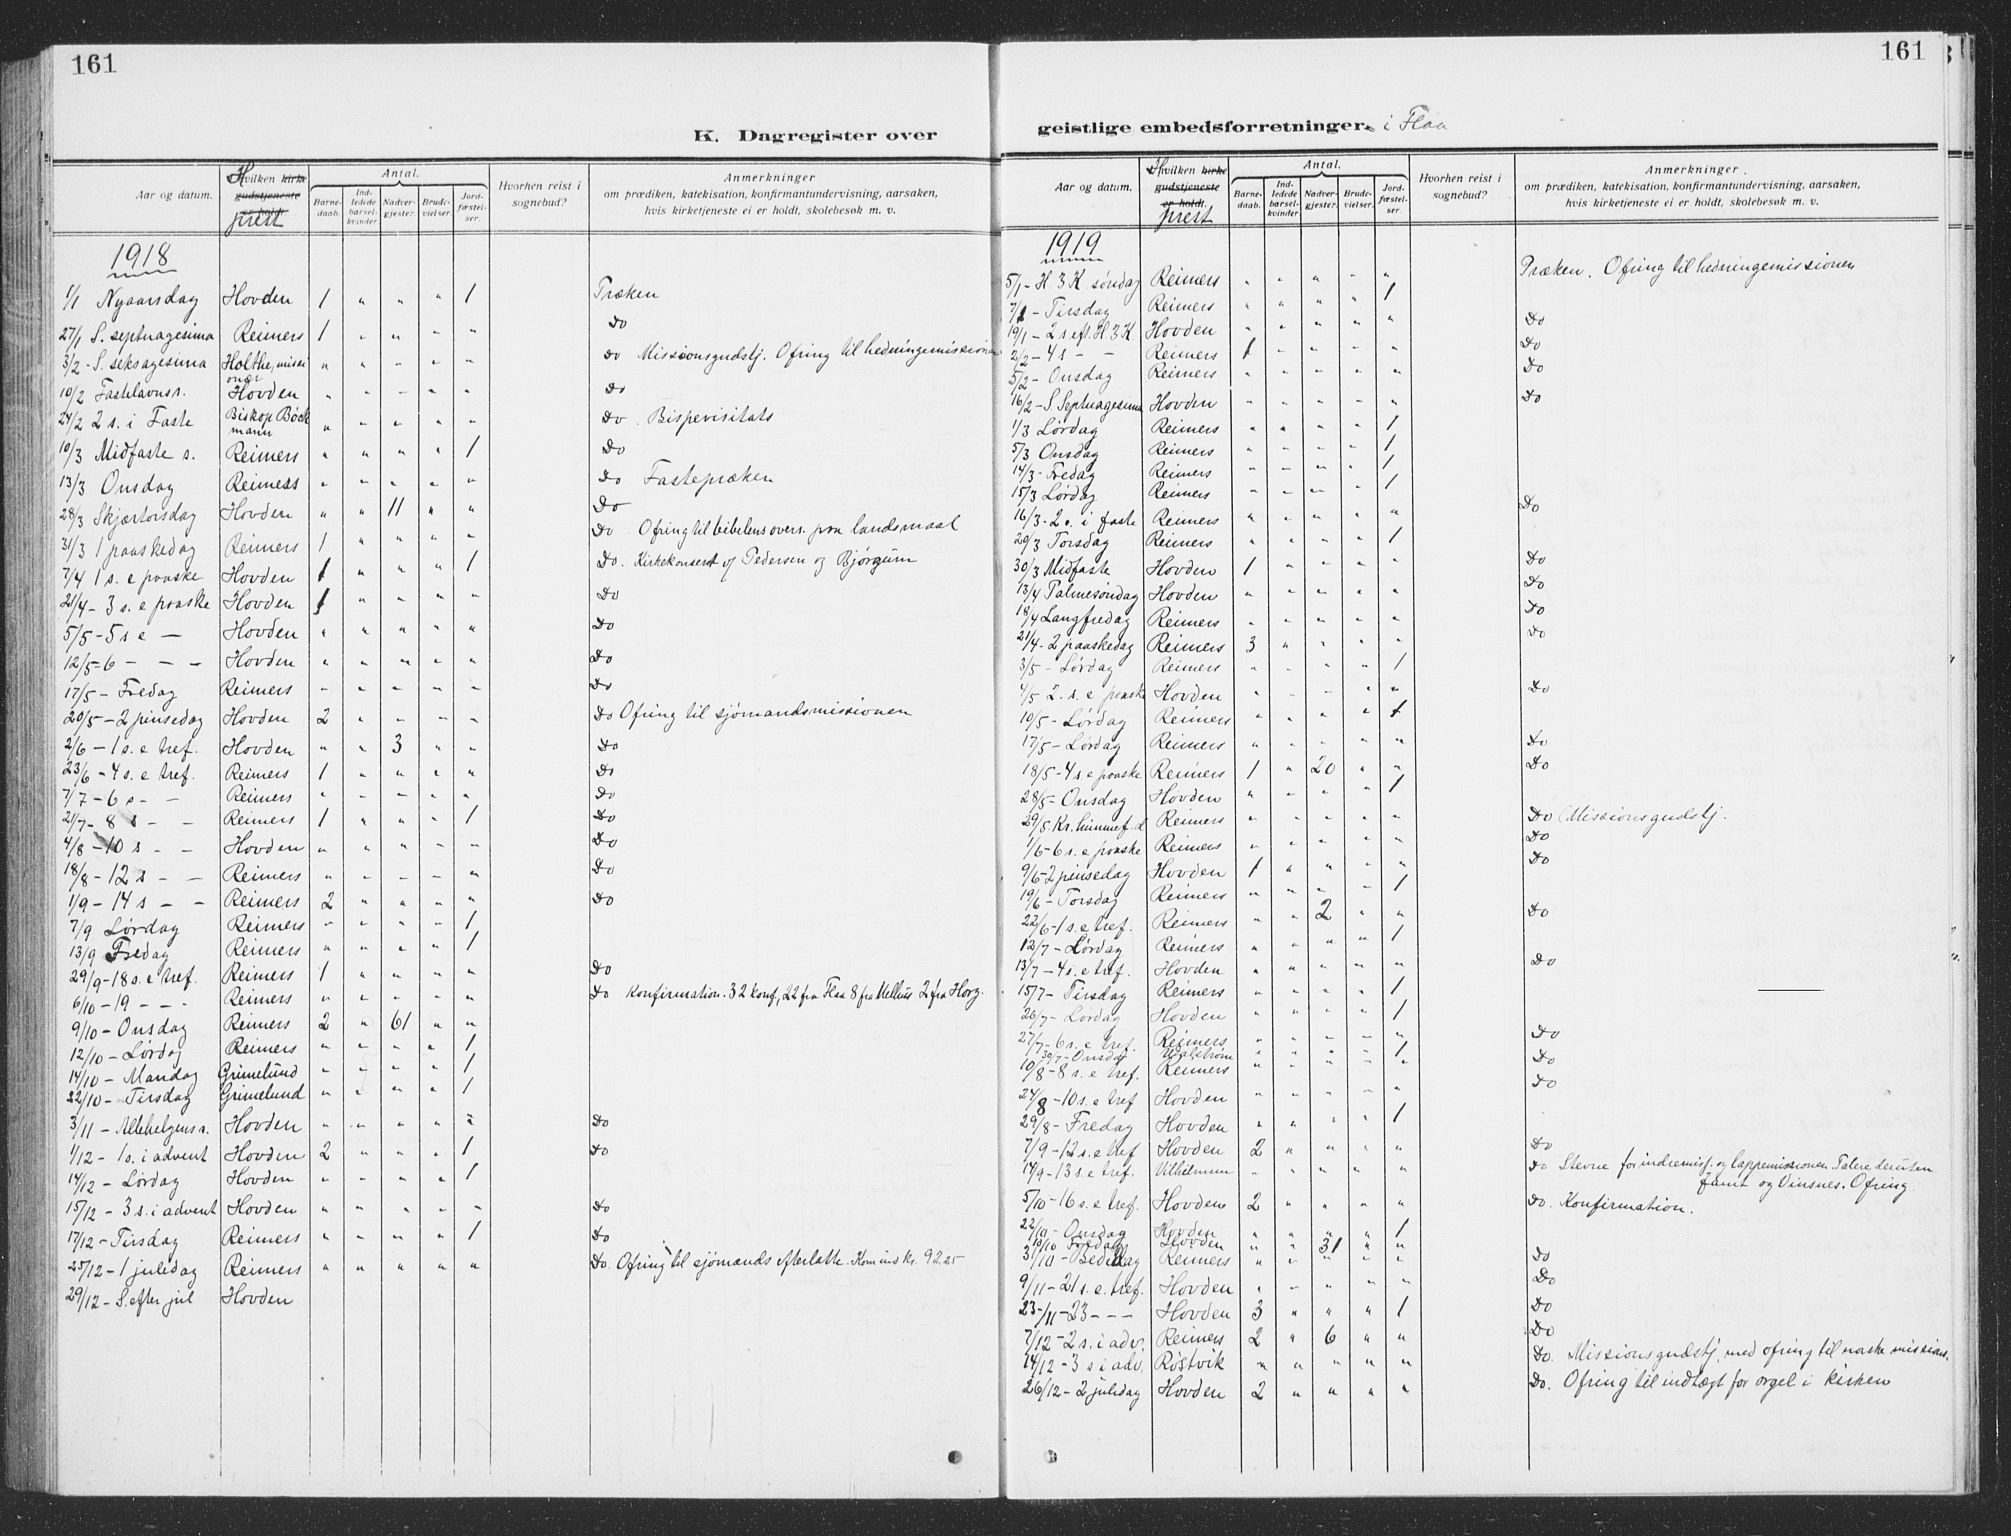 161
K. Dagregister over
Aar og datum. Hvilken kirke gudstjeneste er holdt. prest Antal. Barnedaab. Indledede barselkvinder Nadvergjester. Brudevielser. Jordfæstelser. Hvorhen reist i sognebud? Anmerkninger om prædiken, katekisation, konfirmantundervisning, aarsaken, hvis kirketjeneste ei er holdt, skolebesøk m. v.
1918
1/1 Nyaarsdag Hovden 1 " " " 1 Præken
27/1 S. septuagesima Reimers 1 " " " " Do
3/2 - S. seksagesima Holthe, missionær " " " " " Do Missionsgudstj. Ofring til hedningemissionen
10/2 Fastelavnss. Hovden " " " " " Do
24/2 2 s. i Faste Biskop Böckmann " " " " " Do. Bispevisitats
10/3 Midfaste s. Reimers " " " " 1 Do
13/3 Onsdag Reimers " " " " " Do Fastepræken
28/3 Skjærtorsdag Hovden " " 11 " " Do
31/3 1 paaskedag Reimers 1 " " " " Do. Ofring til bibelens overs. paa landsmaal
7/4 1 s. e paaske Hovden 1 " " " 1 Do. Kirkekonsert v/ Pedersen og Bjørgum
21/4 - 3 s. e paaske Hovden 1 " " " " Do
5/5 - 5 s e — Hovden " " " " " Do
12/5 - 6 - - - Hovden " " " " " Do
17/5 - Fredag Reimers " " " " " Do
20/5 - 2 pinsedag Hovden 2 " " " " Do Ofring til sjømandsmissionen
2/6 - 1 s. e tref. Hovden " " 3 " " Do
23/6 - 4 s. e tref. Reimers 1 " " " " Do
7/7 - 6 s - - Reimers " " " " " Do
21/7 - 8 s - - Reimers 1 " " " 1 Do
4/8 - 10 s - - Hovden " " " " " Do
18/8 - 12 s - - Reimers " " " " " Do
1/9 - 14 s - - Reimers 2 " " " " Do
7/9 Lørdag Reimers " " " " 1
13/9 Fredag Reimers " " " " 1
29/9 - 18 s. e tref. Reimers 1 " " " " Do
6/10 - 19 - - - Reimers " " " " " Do Konfirmation. 32 konf., 22 fra Flaa 8 fra Melhus 2 fra Horg.
9/10 - Onsdag Reimers 2 " 61 " "
12/10 - Lørdag Reimers " " " " 1
14/10 - Mandag Grimelund " " " " 1
22/10 - Tirsdag Grimelund " " " " 1
3/11 - Allehelgenss. Hovden " " " " " Do
1/12 - 1 s. i advent Hovden 2 " " " 1 Do
14/12 - Lørdag Hovden " " " " 1
15/12 - 3 s. i advent Hovden " " " " " Do
17/12 - Tirsdag Reimers " " " " 1 Do
25/12 - 1 juledag Reimers " " " " " Do. Ofring til sjømænds efterlatte. Kom ind kr. 92.25
29/12 - S. efter jul Hovden
161
geistlige embedsforretninger. i Flaa
Aar og datum. Hvilken kirke gudstjeneste er holdt. prest Antal. Barnedaab. Indledede barselkvinder Nadvergjester. Brudevielser. Jordfæstelser. Hvorhen reist i sognebud? Anmerkninger. om prædiken, katekisation, konfirmantundervisning, aarsaken, hvis kirketjeneste ei er holdt, skolebesøk m. v.
1919
5/1 - H. 3 K. søndag Reimers " " " " " Præken. Ofring til hedningemissionen
7/1 - Tirsdag Reimers " " " " 1
19/1 - 2 s eft. H. 3 K Hovden " " " " " Do
2/2 - 4 s - - Reimers 1 " " " " Do
5/2 - Onsdag Reimers " " " " " Do
16/2 - S. Septuagesima Hovden " " " " " Do
1/3 Lørdag Reimers " " " " 1
5/3 Onsdag Reimers " " " " 1
14/3 - Fredag Reimers " " " " 1
15/3 Lørdag Reimers " " " " 1
16/3 - 2 s. i faste Reimers " " " " " Do
29/3 Torsdag Reimers " " " " 1
30/3 Midfaste Hovden 1 " " " " Do
13/4 Palmesøndag Hovden " " " " " Do
18/4 Langfredag Reimers " " " " " Do
21/4 - 2 paaskedag Reimers 3 " " " " Do
3/5 - Lørdag Reimers " " " " 1
4/5 2. s. e paaske Hovden " " " " " Do
10/5 - Lørdag Reimers " " " " 1
17/5 - Lørdag Reimers " " " " " Do
18/5 - 4 s e paaske Reimers 1 " 20 " " Do
28/5 - Onsdag Hovden " " " " 1
29/5. Kr. himmelf. d Reimers " " " " " Do Missionsgudstj.
1/6 - 6 s. e paaske Reimers " " " " " Do
9/6 - 2 pinsedag Hovden 1 " " " " Do
19/6 - Torsdag Reimers " " " " 1
22/6 - 1 s. e tref. Reimers " " 2 " " Do
12/7 - Lørdag Reimers " " " " 1
13/7 - 4 s. e tref. Hovden " " " " " Do
15/7 - Tirsdag Reimers " " " " 1
26/7 - Lørdag Hovden " " " " 1
27/7 - 6 s. e tref. Reimers " " " " " Do
30/7 - Onsdag Walstrøm " " " " 1
10/8 - 8 s. e tref. Reimers " " " " " Do
24/8 - 10 s. e tref Hovden " " " " " Do
29/8 - Fredag Hovden " " " " 1
7/9 - 12 s. e tref Hovden 2 " " " " Do
14/9 - 13 s. e tref. Vilhelmsen " " " " " Do Stevne for indremisj. og lappemissionen. Talere desuten
Jamt og Vinsnes. Ofring.
5/10 - 16 s. e tref. Hovden 2 " " " " Do. Konfirmation.
22/10 - Onsdag Hovden " " " " 1
10/10 Fredag Hovden " " 31 " "
31/10 - Bededag Reimers " " " " " Do
9/11 - 21 s. e. tref. Hovden " " " " " Do
23/11 - 23 - - - Hovden 3 " " " 1 Do
7/12 - 2 s. i adv. Reimers 2 " 6 " " Do
14/12 - 3 s i adv. Røstvik " " " " " Do. Missionsgudstj. med ofring til norske missions.
26/12 - 2 juledag Hovden 2 " " " " Do. Ofring til indtægt for orgel i kirken